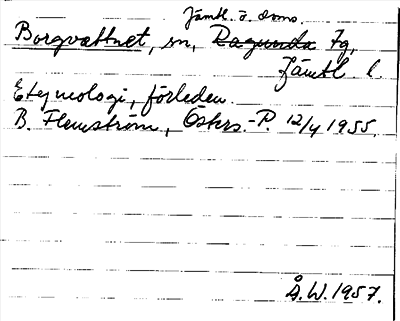 Jämtl. ö. doms.
Borgvattnet, sn, Ragunda Tg,
Jämtl. l.
Etymologi, förleden.
B. Flemström, Östers.-P. 12/4 1955.
Å.W. 1957.